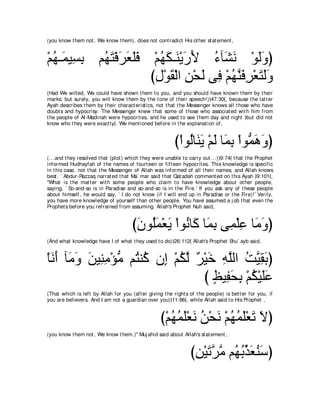 (you know them not, We know them), does not contradict His other statement,
﴿وَلَوْ نَشَآءُ لأَرَيْنَـكَهُمْ فَلَعَرَفْتَهُم بِسِيمَـهُمْ
وَلَتَعْرِفَنَّهُمْ فِى لَحْنِ الْقَوْلِ﴾
(Had We willed, We could have shown them to you, and you should have known them by their
marks; but surely, you will know them by the tone of their speech!)(47:30), because the latter
Ayah describes them by their characteristics, not that the Messenger knows all those who have
doubts and hypocrisy. The Messenger knew that some of those who associated with him from
the people of Al-Madinah were hypocrites, and he used to see them day and night (but did not
know who they were exactly). We mentioned before in the explanation of,
﴿وَهَمُّواْ بِمَا لَمْ يَنَالُواْ﴾
(...and they resolved that (plot) which they were unable to carry out...)(9:74) that the Prophet
informed Hudhayfah of the names of fourteen or fifteen hypocrites. This knowledge is specific
in this case, not that the Messenger of Allah was informed of all their names, and Allah knows
best. `Abdur-Razzaq narrated that Ma`mar said that Qatadah commented on this Ayah (9:101),
"What is the matter with some people who claim to have knowledge about other people,
saying, `So-and-so is in Paradise and so-and-so is in the Fire.' If you ask any of these people
about himself, he would say, `I do not know (if I will end up in Paradise or the Fire)!' Verily,
you have more knowledge of yourself than other people. You have assumed a job that even the
Prophets before you refrained from assuming. Allah's Prophet Nuh said,
﴿وَمَا عِلْمِى بِمَا كَانُواْ يَعْمَلُونَ﴾
(And what knowledge have I of what they used to do)(26:112) Allah's Prophet Shu`ayb said,
﴿بَقِيَّتُ اللَّهِ خَيْرٌ لَّكُمْ إِن كُنتُم مُّؤْمِنِينَ وَمَآ أَنَاْ
عَلَيْكُمْ بِحَفِيظٍ ﴾
(That which is left by Allah for you (after giving the rights of the people) is better for you, if
you are believers. And I am not a guardian over you)(11:86), while Allah said to His Prophet ,
﴿لاَ تَعْلَمُهُمْ نَحْنُ نَعْلَمُهُمْ﴾
(you know them not, We know them.)" Mujahid said about Allah's statement,
﴿سَنُعَذِّبُهُم مَّرَّتَيْنِ﴾